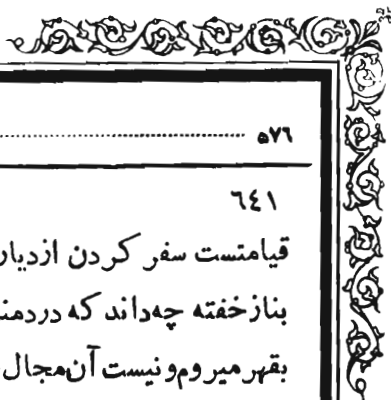 ۵۷۶
۶۴۱
قیامتست سفر کردن ازدیار
بنازخفته چه‌داند که دردمن
بقهر میروم‌و نیست آن‌مجال